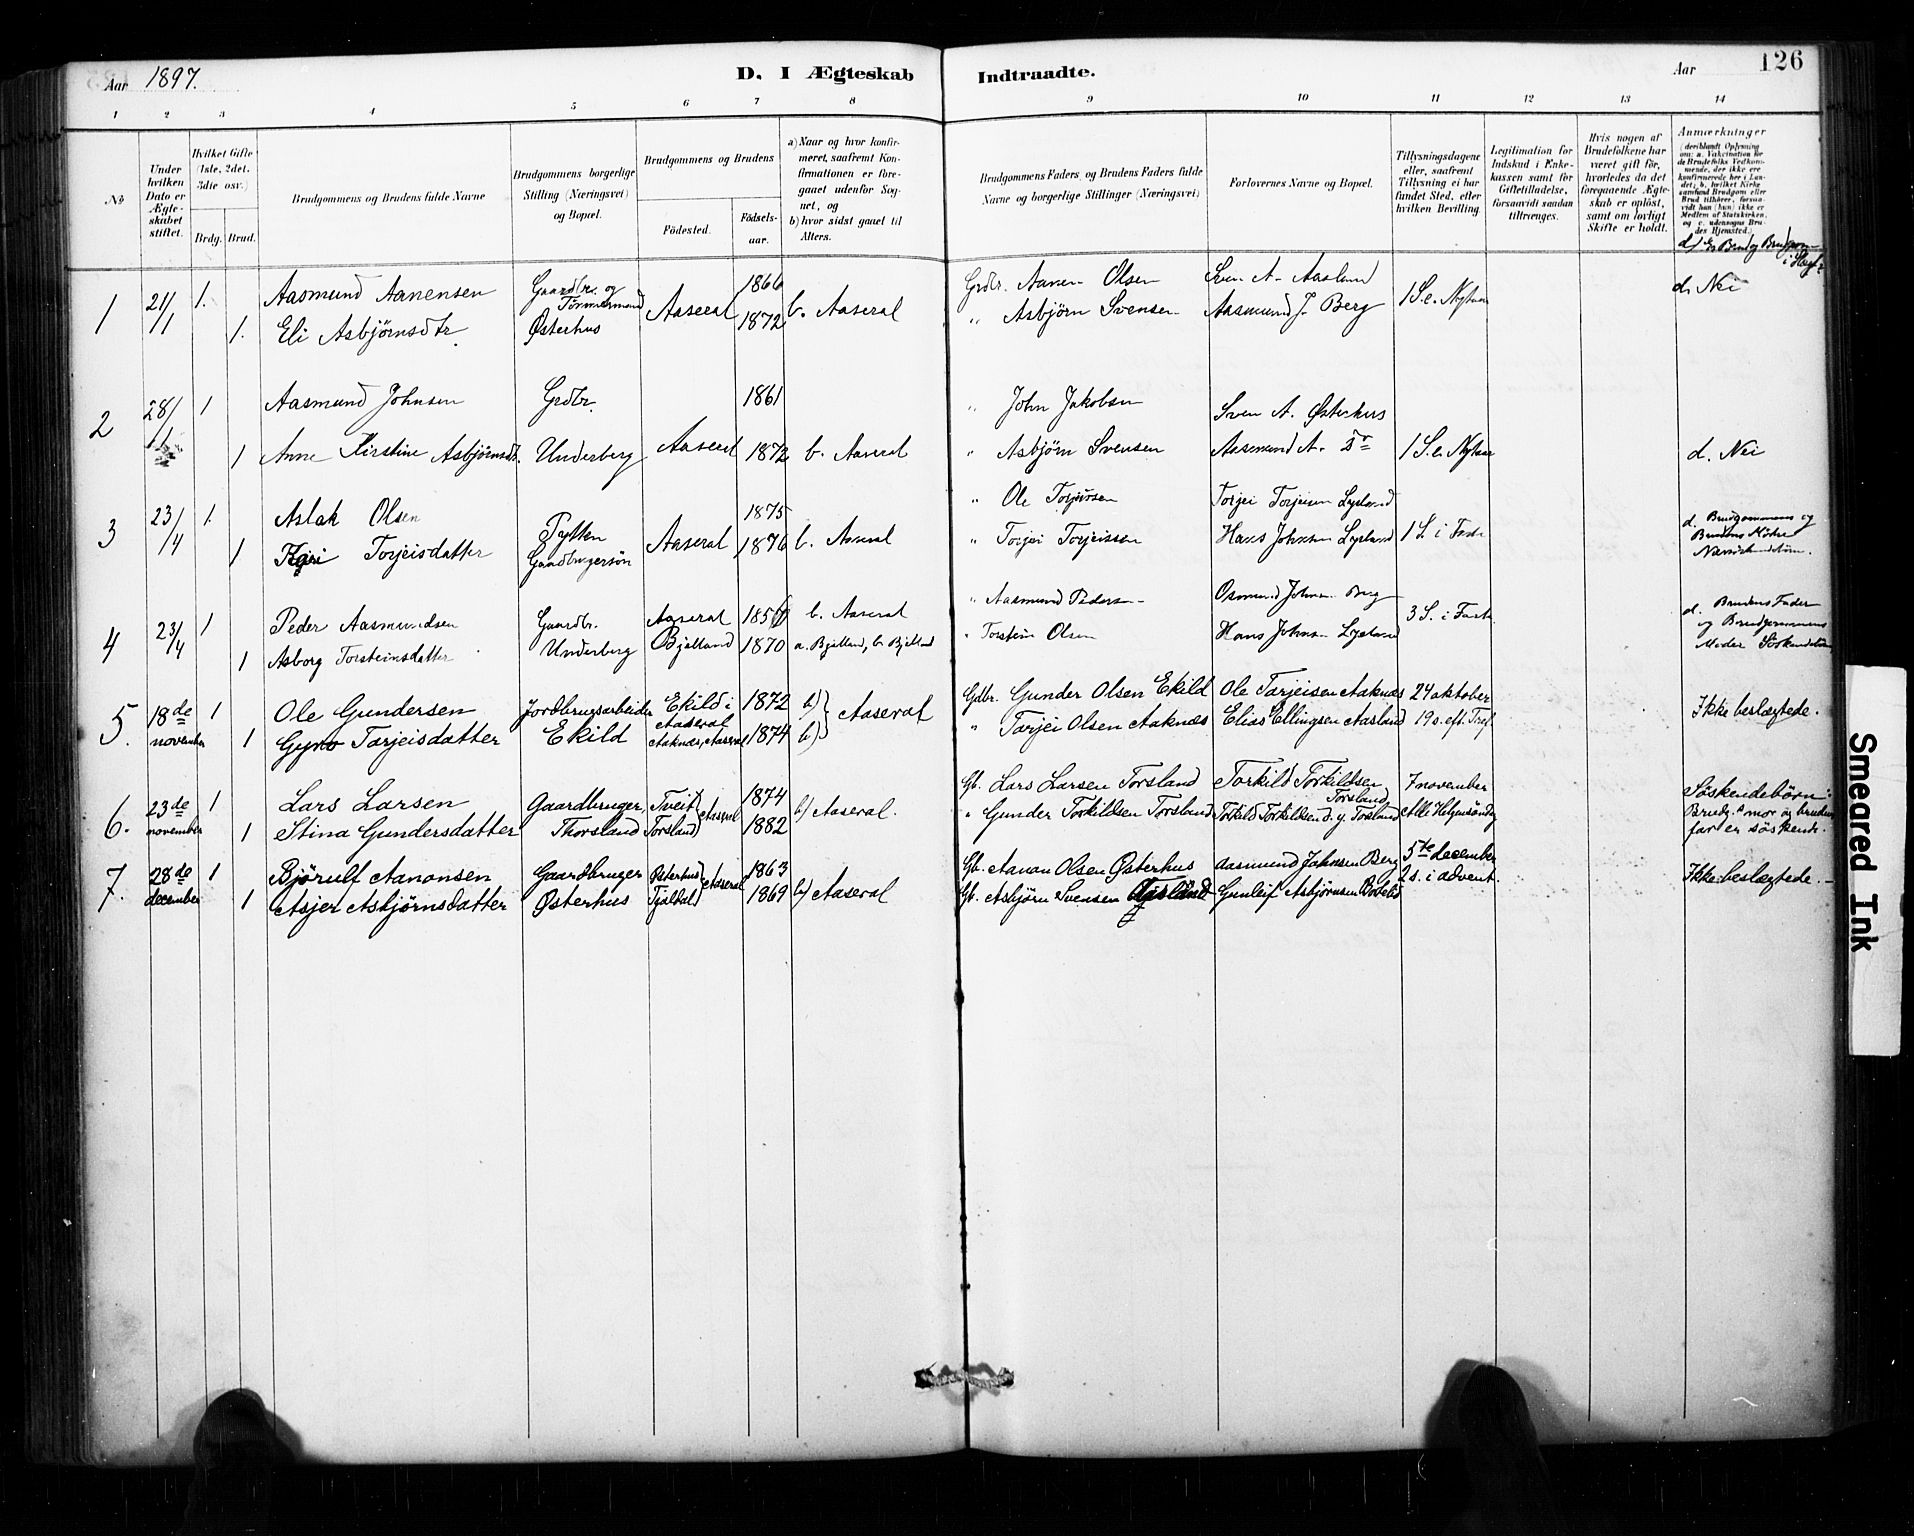 Aar 1897.
D. I Ægteskab Indtraadte.
Aar 126
1 2 3 4 5 6 7 8 9 10 11 12 13 14
No
Under hvilken Dato er Ægteskabet stiftet.
Hvilket Gifte (1ste, 2det, 3dte osv.)
Brdg. Brud.
Brudgommens og Brudens fulde Navne
Brudgommens borgerlige Stilling (Næringsvei) og Bopæl.
Brudgommens og Brudens
Födested. Födselsaar.
a) Naar og hvor konfirmeret, saafremt Konfirmationen er foregaaet udenfor Sognet, og
b) hvor sidst gaaet til Alters.
Brudgommens Faders og Brudens Faders fulde Navne og borgerlige Stillinger (Næringsvei)
Forlovernes Navne og Bopæl.
Tillysningsdagene eller, saafremt Tillysning ei har fundet Sted, efter hvilken Bevilling.
Legitimation for Indskud i Enkekassen samt for Giftetilladelse, forsaavidt saadan tiltrænges.
Hvis nogen af Brudefolkene har været gift för, hvorledes da det foregaaende Ægteskab er oplöst, samt om lovligt Skifte er holdt.
Anmærkninger (deriblandt Oplysning om: a. Vakcination for de Brudefolks Vedkommende, der ikke ere konfirmerede her i Landet; b. hvilket Kirkesamfund Brudgom eller Brud tilhörer, forsaavidt han (hun) ikke er Medlem af Statskirken, og c. udensogns Brudes Hjemsted.)
d) Er Brud og Brudgom i Slægt?
1 21/1 1. Aasmund Aanensen Gaardbr. og Tømmermand 1866 Grdbr. Aanen Olsen Sven A. Aasland d. Nei
1. Eli Asbjørnsdtr. Østerhus Aaseral 1872 b. Aaseral " Asbjørn Svensen Aasmund J. Berg 1 S. e. Nytaar
2 28/1 1 Aasmund Johnsen Grdbr. 1861 " John Jakobsen Sven A. Østerhus
1 Anne Kirstine Asbjørnsdt. Underberg Aaseral 1872 b. Aaseral " Asbjørn Svensen Aasmund A. Do 1 S. e. Nytaar d. Nei
3 23/4 1. Aslak Olsen Pytten 1875 " Ole Torjussen Torjei Torjeisen Lysland d. Brudgommens og
1 Torjeisdatter Gaardbrugersøn Aaseral 1876 b. Aaseral " Torjei Torjeissen Hans Johnsen Lysland 1 S. i Faste Brudens Mødre
4 23/4 1 Peder Aasmundsen Gaardbr. Aaseral b. Aaseral " Aasmund Pedersen Osmund Johnsen Berg 3 S. i Faste d. Brudens Fader og Brudgommens
1 Asborg Torsteinsdatter Underberg Bjelland 1870 a. Bjelland, b. Bjelland " Torstein Olsen Hans Johnsen Lysland Moder Söskendebörn
5. 18de november 1 Ole Gundersen Jordbrugsarbeider Ekild i Aaseral 1872 b) Aaseral Gdbr. Gunder Olsen Ekild Ole Tarjeisen Aaknæs 24 oktober Ikke beslægtede.
1 Gyro Tarjeisdatter Ekild Aaknæs, Aaseral 1874 b) " Tarjei Olsen Aaknæs Elias Ellingsen Aasland 19 s. eft. Tref.
6. 23de november 1 Lars Larsen Gaardbruger Tveit Aaseral 1874 b) Aaseral. Gb. Lars Larsen Torsland Torkild Torkildsen Torsland 7 november Søskendebörn:
1 Stina Gundersdatter Thorsland Torsland 1882 " Gunder Torkildsen Torsland Torkild Torkildsen d. y. Torsland Alle Helgensöndg Brudg.s mor og brudens far er söskende.
7. 28de december 1 Bjørulf Aanonsen Gaardbruger Østerhus Aaseral 1863 b) Aaseral Gb. Aanon Olsen Østerhus Aasmund Johnsen Berg 5te december Ikke beslægtede.
1 Asjer Asbjørnsdatter Østerhus Tjaldal 1869 Gb. Asbjørn Svensen Gunleif Asbjørnsen 2 s. i advent.
Smeared Ink